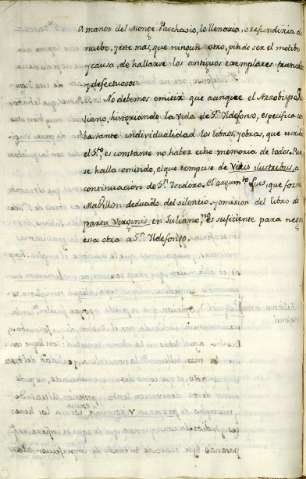 a manos del Monge Paschasio, lo llenaria, o refundiria de
nuebo, y este mas, que ningun otro, pudo ser el motibo,
y causa, de hallarse los antiguos exemplares truncados
y defectuosos.
No debemos omitir que aunque el Arzobispo Ju
liano, escribiendo la Vida de Sn. Yldefonso, especifica con
bastante individualidad los libros, y obras, que escribió
el Sto. es constante no haber echo memoria de todos, pues
se halla omitido, el que compuso de Viris ilustribus, a
continuacion de Sn. Ysidoro. El argumto. pues, que forma
Mabillon deducido del silencio, y omision del libro de
partu Virginis, en Juliano, no es suficiente para negar
esta obra a Sn. Yldefonso.